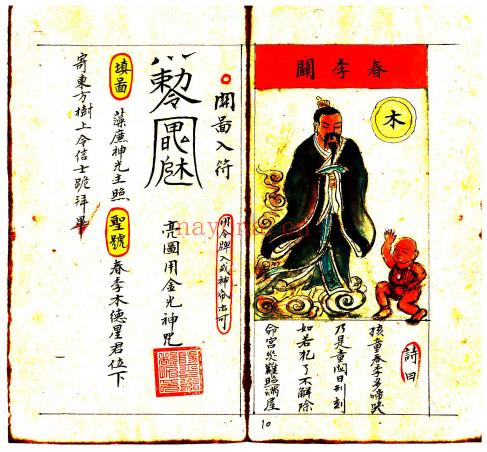 春季關
木
詩曰
孩童春季多啼哭
乃是童関日刑刻
如若犯了不解除
命宮災難照滿屋
10
開圖入符
用令牌入或神筆亦可
勅令
亮圖用金光神咒
填圖
神光主照
聖號
春季木德星君位下
寄東方樹上令信士跪拜畢